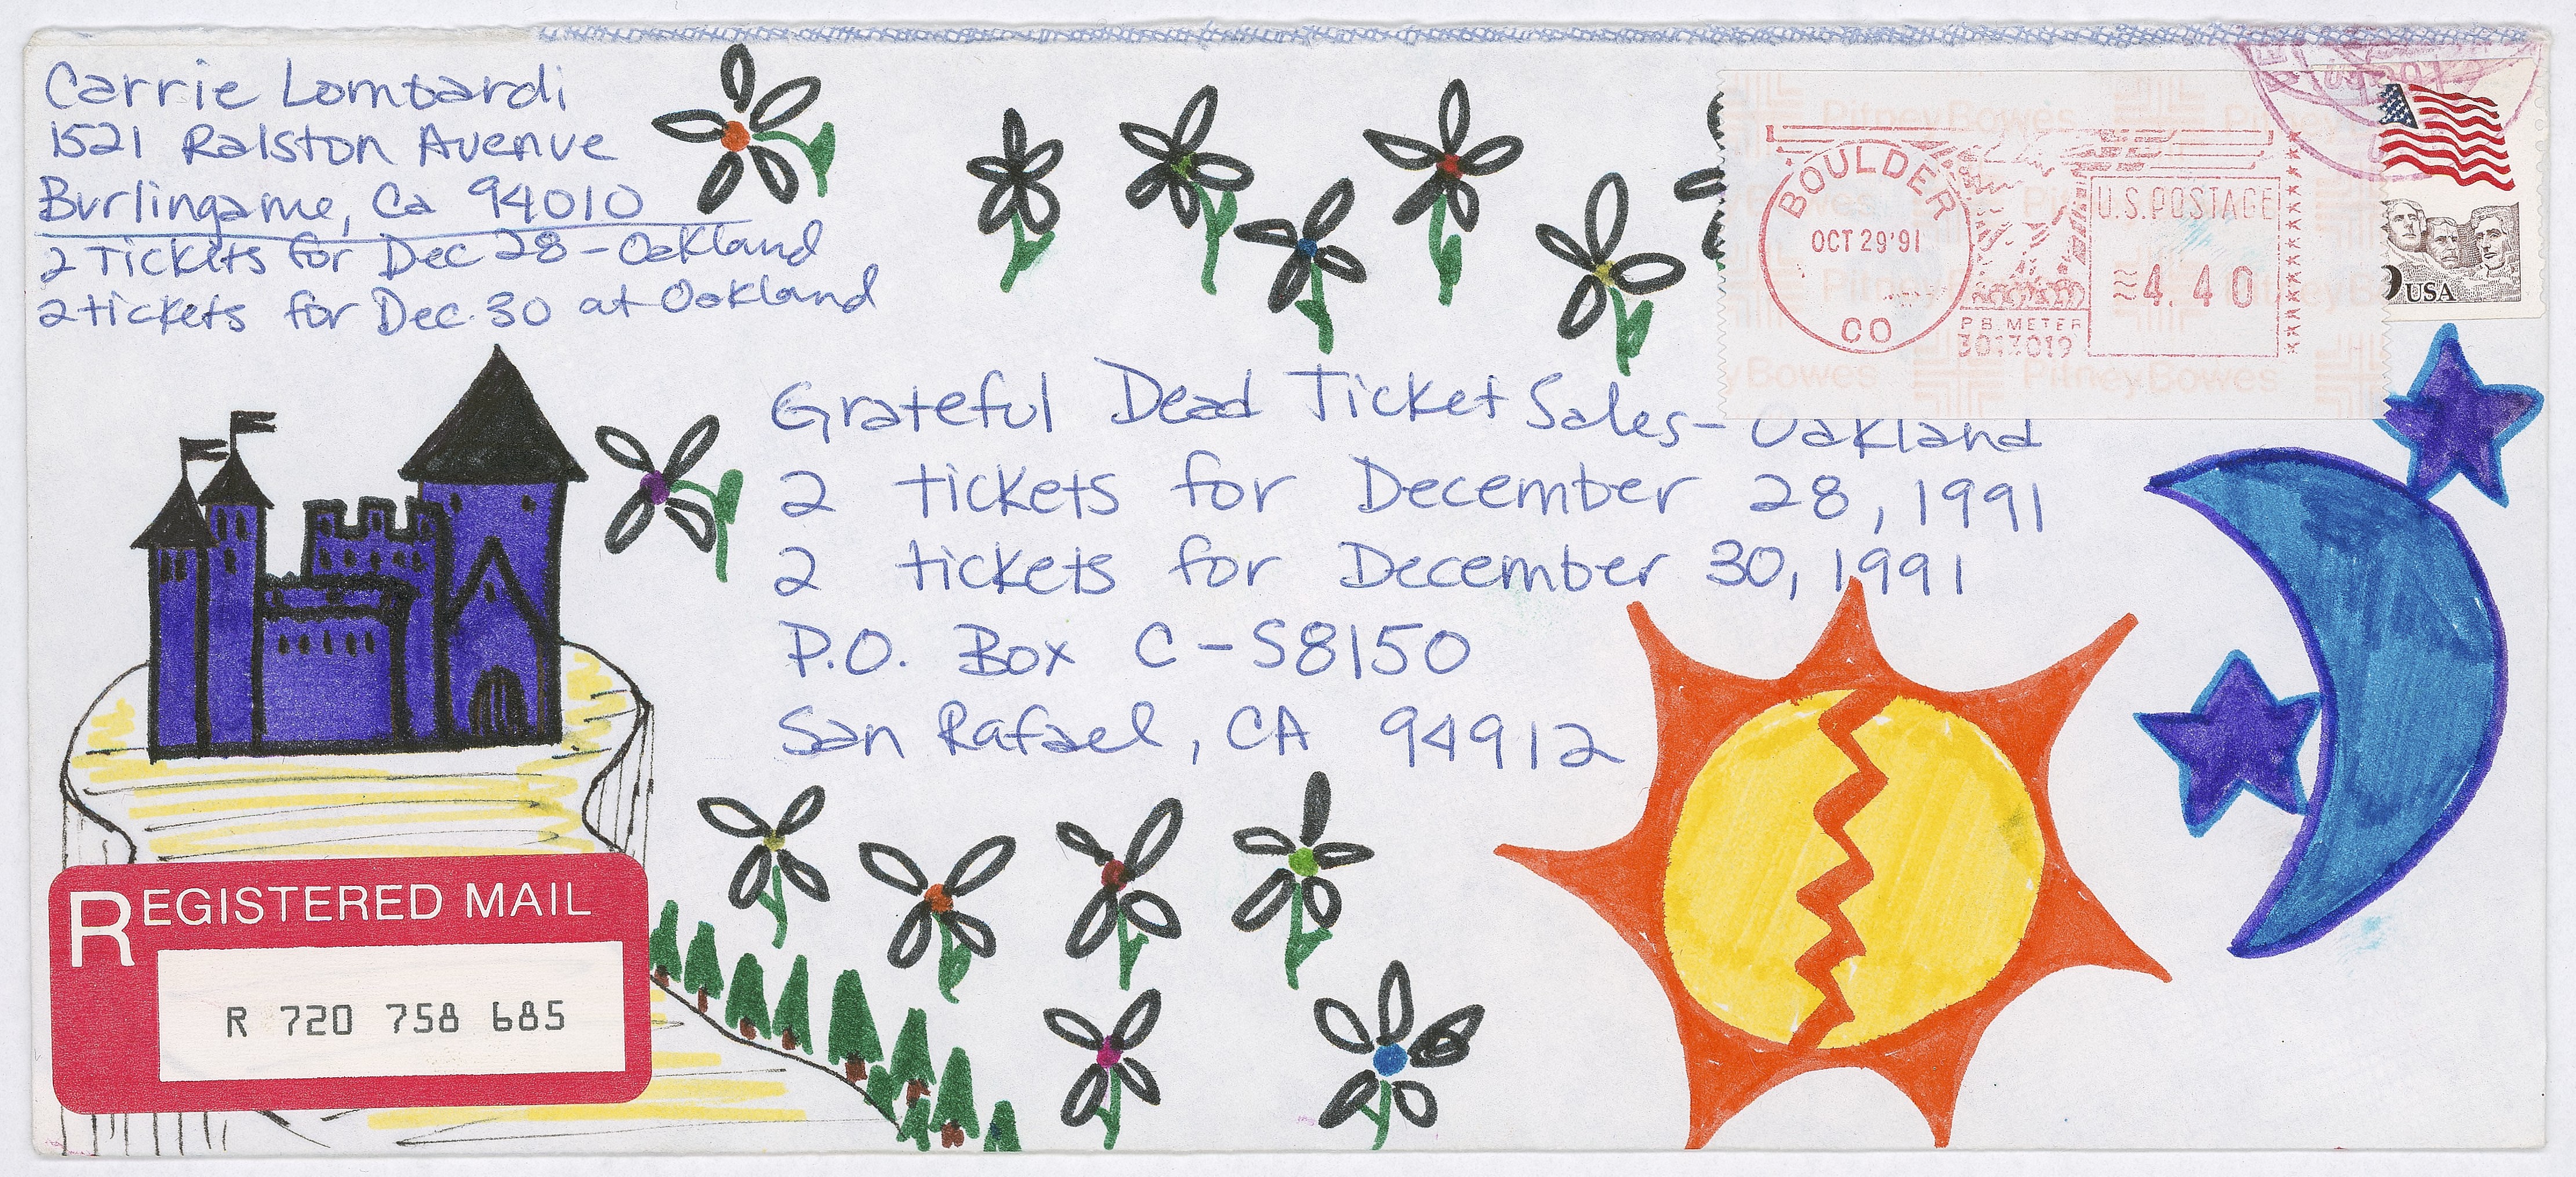 Carrie Lombardi
1521 Ralston Avenue
Burlingame, Ca 94010
2 Tickets for Dec 28 - Oakland
2 tickets for Dec. 30 at Oakland
Pitney Bowes
BOULDER
OCT 29 '91
CO
P.B. METER
3017019
U.S. POSTAGE
4.40
USA
Pitney Bowes
Grateful Dead Ticket Sales - Oakland
2 tickets for December 28, 1991
2 tickets for December 30, 1991
P.O. Box C-S8150
San Rafael, CA 94912
REGISTERED MAIL
R 720 758 685